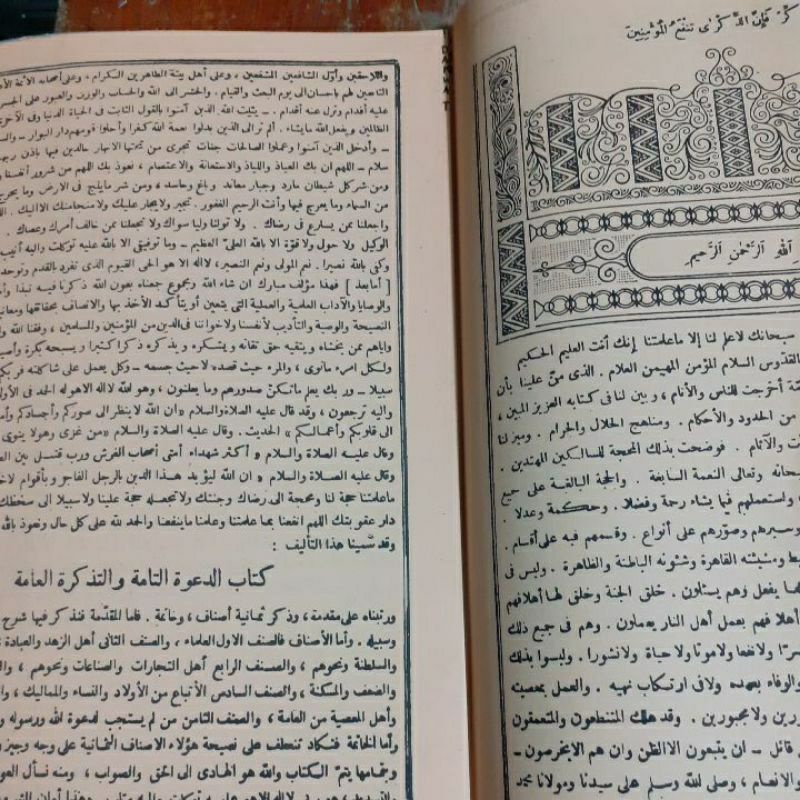 كر فإن الذكرى تنفع المؤمنين
الله الرحمن الرحيم
سبحانك لا علم لنا إلا ما علمتنا إنك أنت العليم الحكيم
القدوس السلام المؤمن المهيمن العلام . الذى من علينا بأن
أخرجت للناس والأنام ، وبين لنا فى كتابه العزيز المبين ،
من الحدود والأحكام . ومناهج الحلال والحرام . وميز لنا
والآثام . فوضحت بذلك المحجة للسالكين المهتدين .
سبحانه وتعالى النعمة السابغة . والحجة البالغة على جميع
، واستعملهم فيما يشاء رحمة وفضلا . وحكمة وعدلا .
وسيرهم وصورهم على أنواع . وقسمهم فيه على أقسام .
ومشيئته القاهرة وشئونه الباطنة والظاهرة . وليس فى
عما يفعل وهم يسئلون . خلق الجنة وخلق لها أهلا فهم
أهلا فهم بعمل أهل النار يعملون . وهم فى جميع ذلك
ضرا ولا نفعا ولا موتا ولا حياة ولا نشورا . وليسوا بذلك
والوفاء بعهده ولا فى ارتكاب نهيه . والعمل بمعصيته
ولا مجبورين . وقد هلك المتنطعون والمتعمقون
قائل ــ ان يتبعون الا الظن وان هم الا يخرصون ــ
والانعام ، وصلى الله وسلم على سيدنا ومولانا محمد
واللاحقين وأول الشافعين المشفعين ، وعلى أهل بيته الطاهرين الكرام ، وعلى أصحابه الأئمة
التابعين لهم باحسان الى يوم البعث والقيام ، والحشر الى الله والحساب والوزن والعبور على الجسر
عليه أقدام وتزل عنه أقدام . ــ يثبت الله الذين آمنوا بالقول الثابت فى الحياة الدنيا وفى الآخرة
الظالمين ويفعل الله ما يشاء . ألم تر الى الذين بدلوا نعمة الله كفرا وأحلوا قومهم دار البوار ــ
ــ وأدخل الذين آمنوا وعملوا الصالحات جنات تجرى من تحتها الانهار خالدين فيها باذن ربهم
سلام ــ اللهم ان بك العياذ واللياذ والاستعانة والاعتصام ، نعوذ بك اللهم من شرور أنفسنا
ومن شر كل شيطان مارد وجبار معاند وباغ وحاسد ، ومن شر ما يلج فى الارض وما يخرج
من السماء وما يعرج فيها وأنت الرحيم الغفور . تجير ولا يجار عليك ولا منجا منك الا اليك .
واجعلنا ممن يسارع فى رضاك . ولا تولنا وليا سواك ولا تجعلنا ممن خالف أمرك وعصاك .
الوكيل ولا حول ولا قوة الا بالله العلى العظيم ــ وما توفيقى الا بالله عليه توكلت واليه أنيب
وكفى بالله نصيرا . نعم المولى ونعم النصير، لا اله الا هو الحى القيوم الذى تفرد بالقدم وتوحد
[ أما بعد ] فهذا مؤلف مبارك ان شاء الله ومجموع جمعناه بعون الله ذكرنا فيه نبذا
والوصايا والآداب العلمية والعملية التى يتعين أو يتأكد الأخذ بها والاتصاف بحقائقها ومعانيها
النصيحة والوصية والتأديب لأنفسنا ولاخواننا فى الدين من المؤمنين والمسلمين ، وفقنا الله
واياهم ممن يخشاه ويتقيه حق تقاته ويشكره ويذكره ذكرا كثيرا ويسبحه بكرة وأصيلا
ولكل امرء مانوى ، والمرء حيث قصده لا حيث جسمه ــ وكل يعمل على شاكلته فربكم
سبيلا ــ وربك يعلم ما تكن صدورهم وما يعلنون ، وهو الله لا اله الا هو له الحمد فى الأولى
واليه ترجعون ، وقد قال عليه الصلاة والسلام « ان الله لا ينظر الى صوركم وأجسادكم
الى قلوبكم وأعمالكم » الحديث . وقال عليه الصلاة والسلام « من غزى وهو لا ينوى
وقال عليه الصلاة والسلام « أكثر شهداء أمتى أصحاب الفرش ورب قتيل بين
وقال عليه الصلاة والسلام « ان الله ليؤيد هذا الدين بالرجل الفاجر وبأقوام لا
ما علمتنا حجة لنا ومحجة الى رضاك وجنتك ولا تجعله حجة علينا ولا سبيلا الى سخطك
دار عقوبتك اللهم انفعنا بما علمتنا وعلمنا ما ينفعنا والحمد لله على كل حال ونعوذ بالله
وقد سمينا هذا التأليف :
كتاب الدعوة التامة والتذكرة العامة
ورتبناه على مقدمة ، وذكر ثمانية أصناف ، وخاتمة . فاما المقدمة فنذكر فيها شرح
وسبيله . وأما الأصناف فالصنف الاول العلماء ، والصنف الثانى أهل الزهد والعبادة
والسلطنة ونحوهم ، والصنف الرابع أهل التجارات والصناعات ونحوهم ،
والضعف والمسكنة ، والصنف السادس الأتباع من الأولاد والنساء والمماليك ،
وأهل المعصية من العامة ، والصنف الثامن من لم يستجب لدعوة الله ورسوله
وأما الخاتمة فنكاد تنعطف على نصيحة هؤلاء الاصناف الثمانية على وجه وجيز
وبتمامها يتم الكتاب والله هو الهادى الى الحق والصواب ، ومنه نسأل